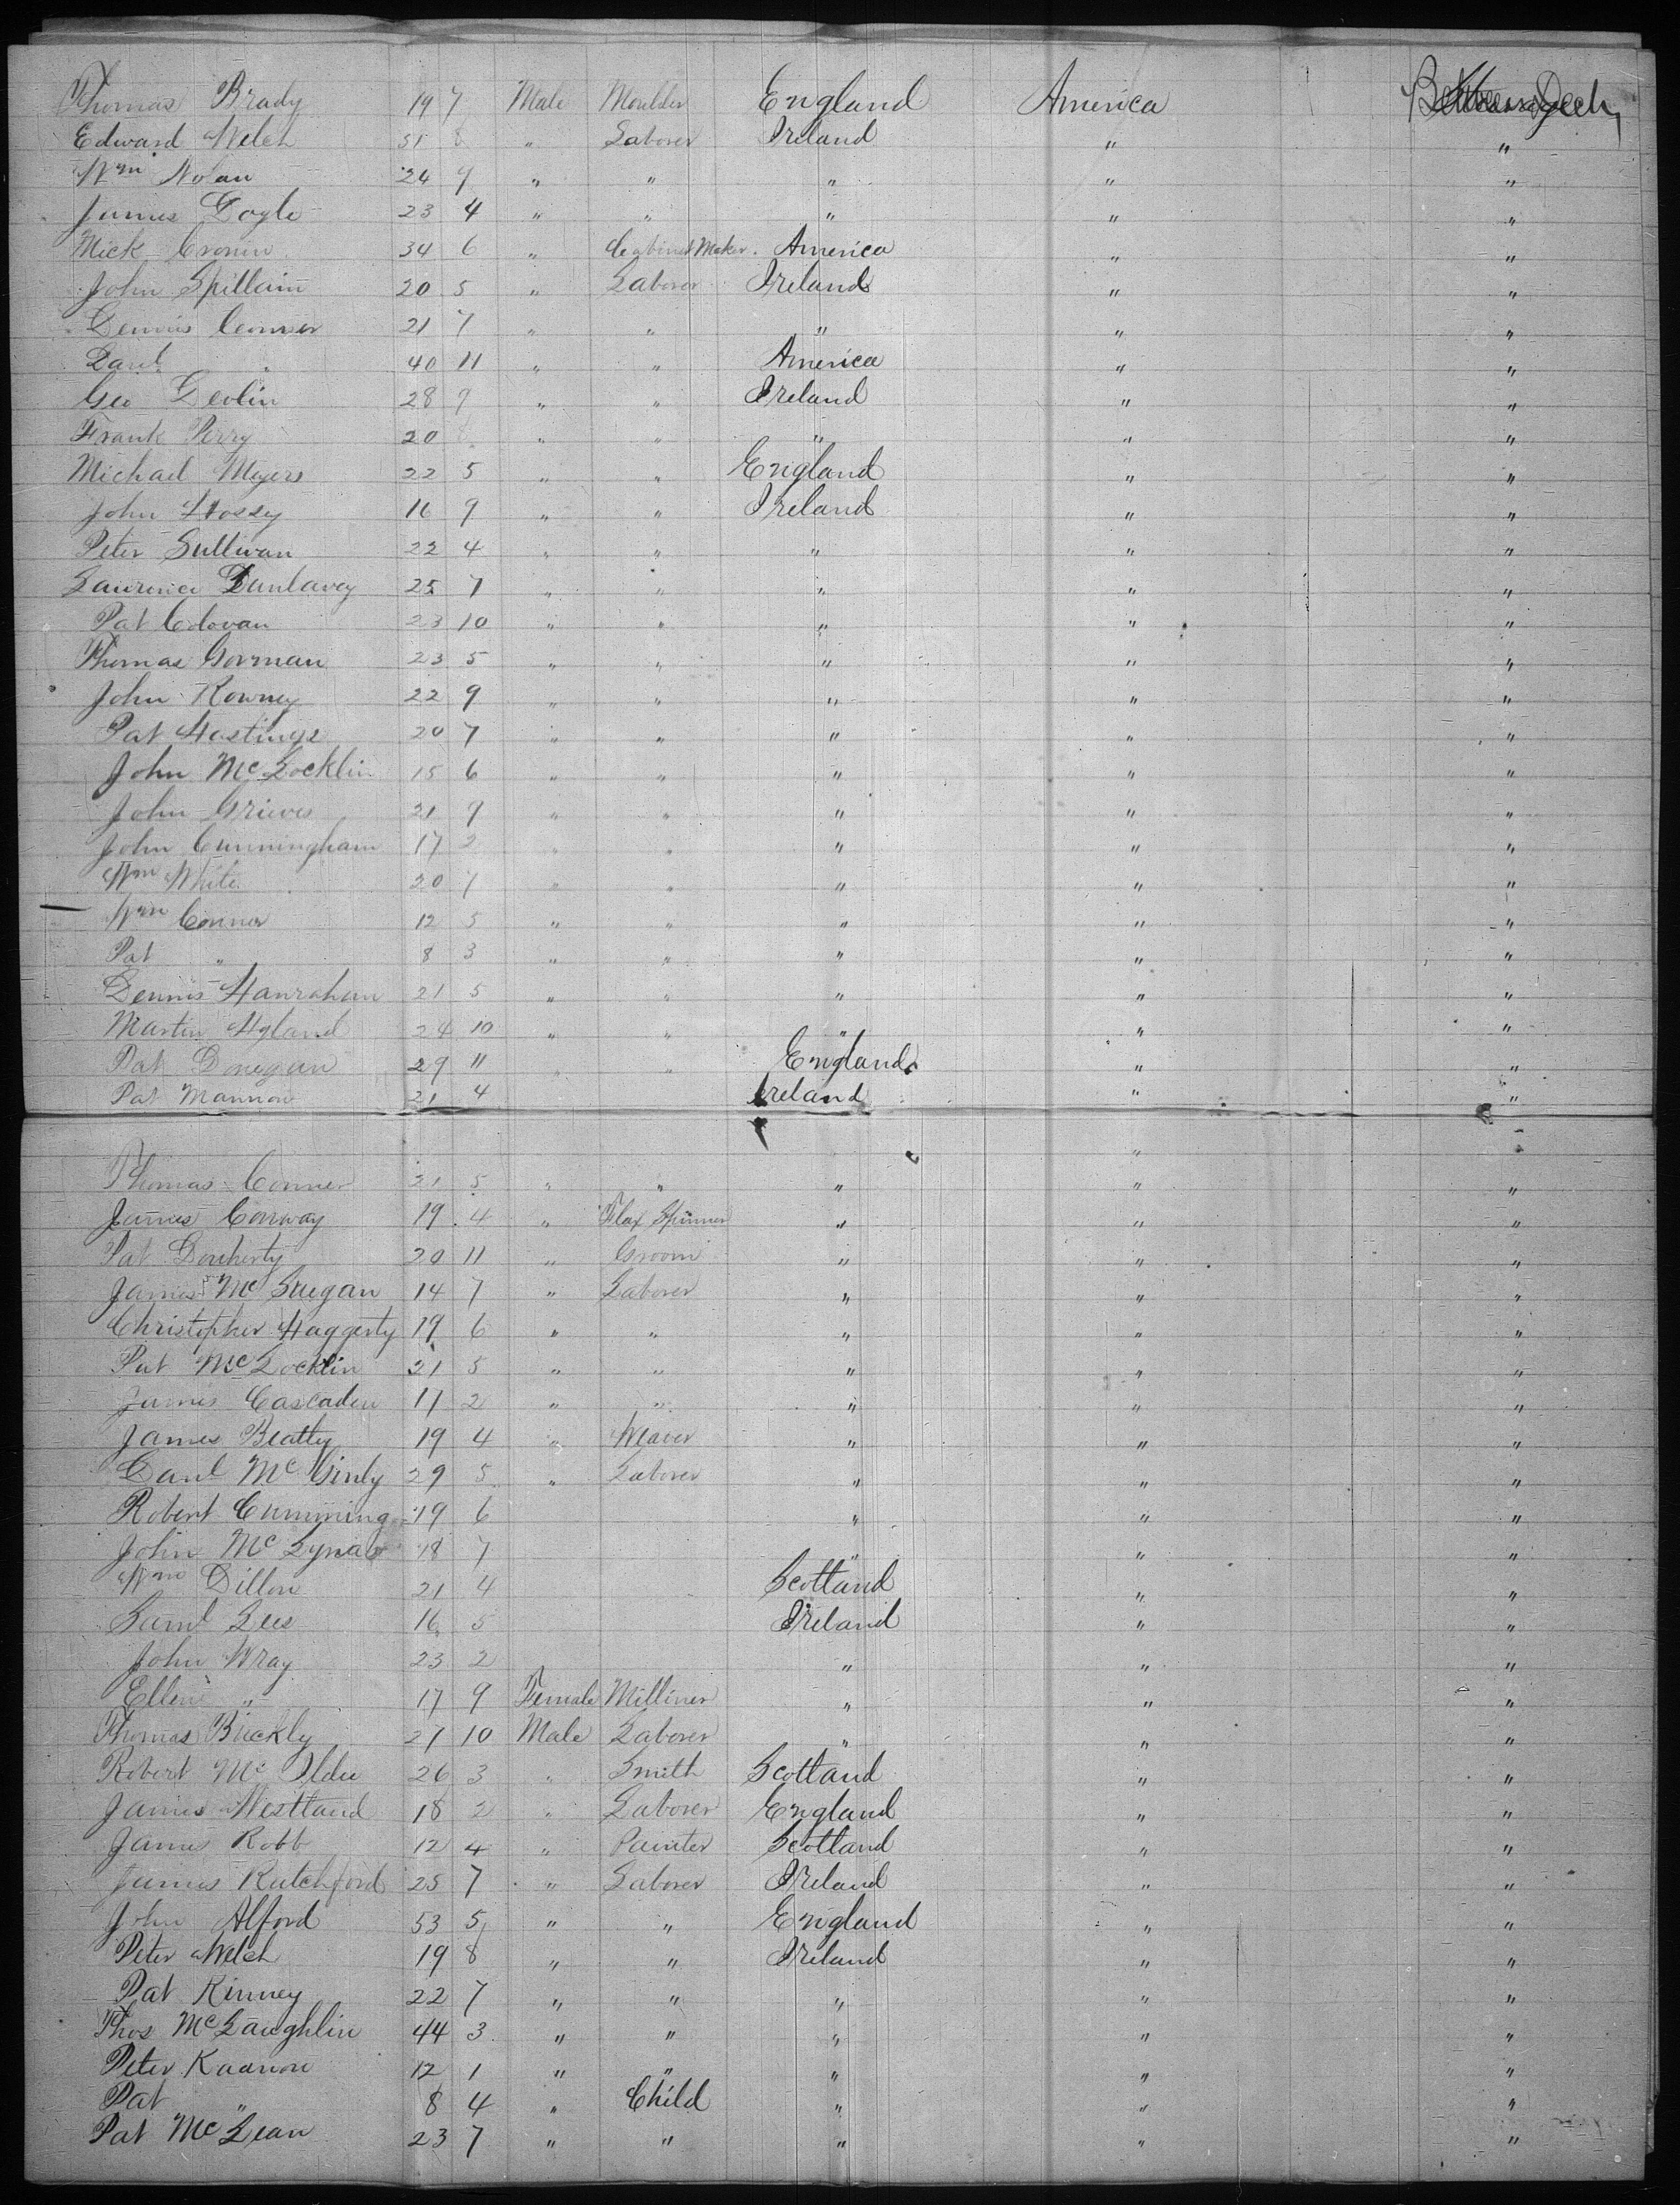 Thomas Brady 19 7 Male Moulder England America Between Deck
Edward Welch 51 8 " Laborer Ireland " "
Wm Nolan 24 9 " " " " "
James Doyle 23 4 " " " " "
Mick Cronin 34 6 " Cabinet Maker. America " "
John Spillain 20 5 " Laborer Ireland " "
Dennis Connor 21 7 " " " " "
Danl " 40 11 " " America " "
Geo Devlin 28 9 " " Ireland " "
Frank Perry 20 " " " " "
Michael Meyers 22 5 " " England " "
John Hossey 16 9 " " Ireland " "
Peter Sullivan 22 4 " " " " "
Laurence Dunlavey 25 7 " " " " "
Pat Colovan 23 10 " " " " "
Thomas Gorman 23 5 " " " " "
John Rowney 22 9 " " " " "
Pat Hastings 20 7 " " " " "
John McLocklin 15 6 " " " " "
John Grieves 21 9 " " " " "
John Cunningham 17 2 " " " " "
Wm White 20 7 " " " " "
Wm Connor 12 5 " " " " "
Pat " 8 3 " " " " "
Dennis Hanrahan 21 5 " " " " "
Martin Hyland 24 10 " " " " "
Pat Donegan 29 11 " " England " "
Pat Mannon 21 4 Ireland " "
" "
Thomas Conner 21 5 " " " " "
James Conway 19 4 " Flax Spinner " " "
Pat Douherty 20 11 " Groom " " "
James McGuegan 14 7 " Laborer " " "
Christopher Haggerty 19 6 " " " " "
Pat McLocklin 21 5 " " " " "
James Cascaden 11 2 " " " " "
James Beatty 19 4 " Weaver " " "
Danl McGinly 29 5 " Laborer " " "
Robert Cumming 19 6 " " "
John McLynab 18 7 " " "
Wm Dillon 21 4 Scotland " "
Saml Lees 16 5 Ireland " "
John Wray 23 2 " " "
Ellen " 17 9 Female Milliner " " "
Thomas Buckly 21 10 Male Laborer " " "
Robert McIldee 26 3 " Smith Scotland " "
James Westland 18 2 " Laborer England " "
James Robb 12 4 " Painter Scotland " "
James Rutchford 25 7 " Laborer Ireland " "
John Alford 53 5 " " England " "
Peter Welch 19 8 " " Ireland " "
Pat Kinney 22 7 " " " " "
Thos McLaughlin 44 3 " " " " "
Peter Kaanon 12 1 " " " " "
Pat " 8 4 " Child " " "
Pat McLean 23 7 " " " " "